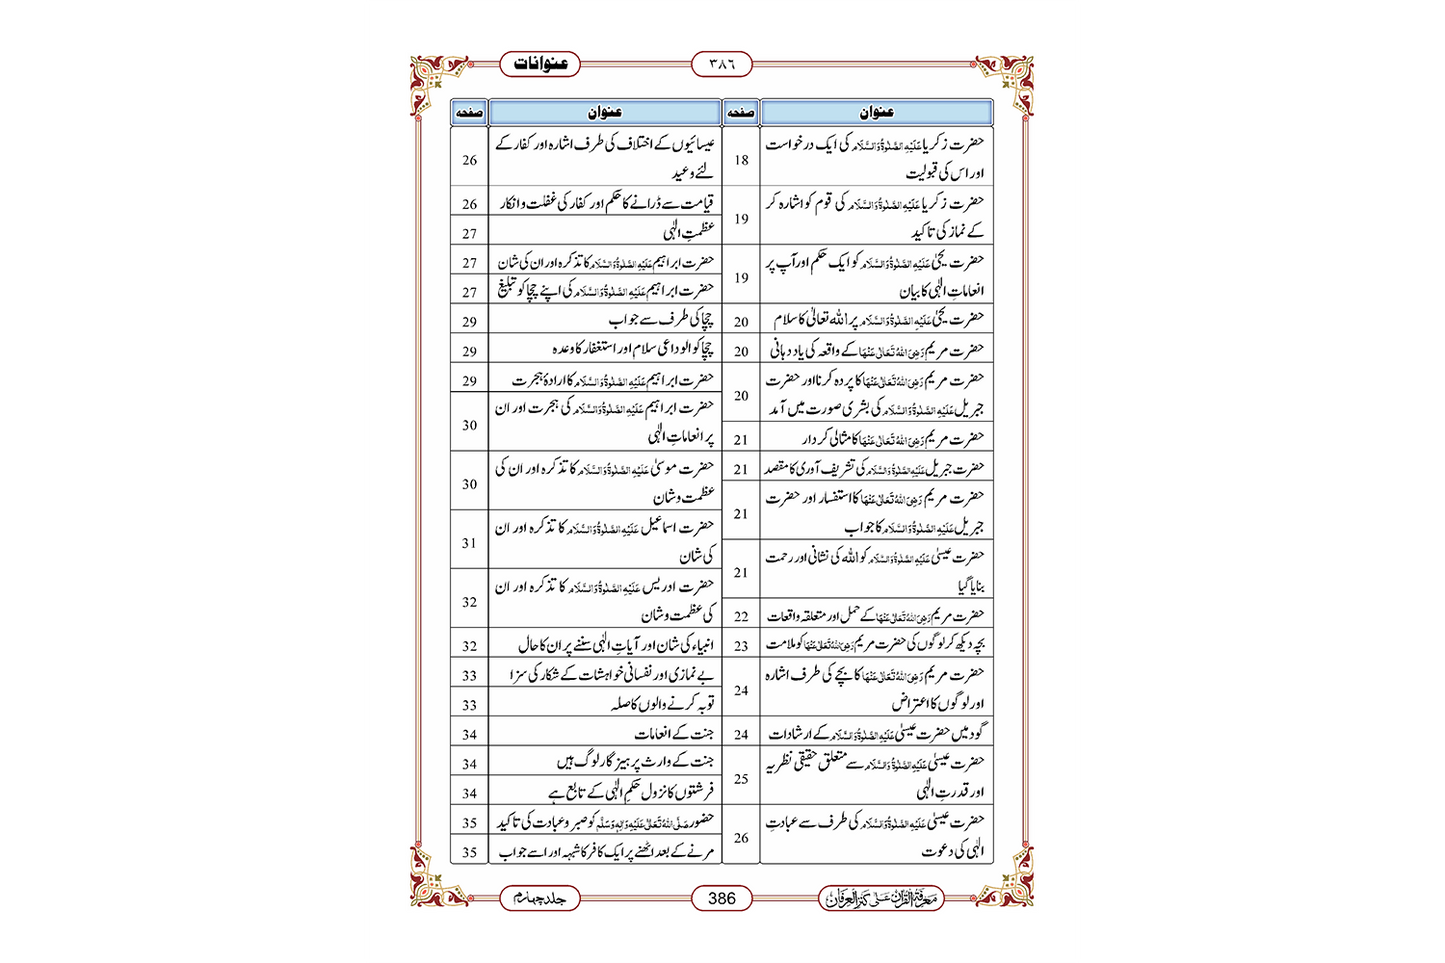 عنوانات
۳۸٦
عنوان
صفحہ
حضرت زکریا عَلَیْہِ الصَّلٰوۃُ وَالسَّلَام کی ایک درخواست
اور اس کی قبولیت
18
حضرت زکریا عَلَیْہِ الصَّلٰوۃُ وَالسَّلَام کی قوم کو اشارہ کر
کے نماز کی تاکید
19
حضرت یحیٰ عَلَیْہِ الصَّلٰوۃُ وَالسَّلَام کو ایک حکم اور آپ پر
انعاماتِ الٰہی کا بیان
19
حضرت یحیٰ عَلَیْہِ الصَّلٰوۃُ وَالسَّلَام پر اللہ تعالیٰ کا سلام
20
حضرت مریم رَضِیَ اللہُ تَعَالٰی عَنْہَا کے واقعہ کی یاد دہانی
20
حضرت مریم رَضِیَ اللہُ تَعَالٰی عَنْہَا کا پردہ کرنا اور حضرت
جبریل عَلَیْہِ الصَّلٰوۃُ وَالسَّلَام کی بشری صورت میں آمد
20
حضرت مریم رَضِیَ اللہُ تَعَالٰی عَنْہَا کا مثالی کردار
21
حضرت جبریل عَلَیْہِ الصَّلٰوۃُ وَالسَّلَام کی تشریف آوری کا مقصد
21
حضرت مریم رَضِیَ اللہُ تَعَالٰی عَنْہَا کا استفسار اور حضرت
جبریل عَلَیْہِ الصَّلٰوۃُ وَالسَّلَام کا جواب
21
حضرت عیسیٰ عَلَیْہِ الصَّلٰوۃُ وَالسَّلَام کو اللہ کی نشانی اور رحمت
بنایا گیا
21
حضرت مریم رَضِیَ اللہُ تَعَالٰی عَنْہَا کے حمل اور متعلقہ واقعات
22
بچہ دیکھ کر لوگوں کی حضرت مریم رَضِیَ اللہُ تَعَالٰی عَنْہَا کو ملامت
23
حضرت مریم رَضِیَ اللہُ تَعَالٰی عَنْہَا کا بچے کی طرف اشارہ
اور لوگوں کا اعتراض
24
گود میں حضرت عیسیٰ عَلَیْہِ الصَّلٰوۃُ وَالسَّلَام کے ارشادات
24
حضرت عیسیٰ عَلَیْہِ الصَّلٰوۃُ وَالسَّلَام سے متعلق حقیقی نظریہ
اور قدرتِ الٰہی
25
حضرت عیسیٰ عَلَیْہِ الصَّلٰوۃُ وَالسَّلَام کی طرف سے عبادتِ
الٰہی کی دعوت
26
عنوان
صفحہ
عیسائیوں کے اختلاف کی طرف اشارہ اور کفار کے
لئے وعید
26
قیامت سے ڈرانے کا حکم اور کفار کی غفلت و انکار
26
عظمتِ الٰہی
27
حضرت ابراہیم عَلَیْہِ الصَّلٰوۃُ وَالسَّلَام کا تذکرہ اور ان کی شان
27
حضرت ابراہیم عَلَیْہِ الصَّلٰوۃُ وَالسَّلَام کی اپنے چچا کو تبلیغ
27
چچا کی طرف سے جواب
29
چچا کو الوداعی سلام اور استغفار کا وعدہ
29
حضرت ابراہیم عَلَیْہِ الصَّلٰوۃُ وَالسَّلَام کا ارادۂ ہجرت
29
حضرت ابراہیم عَلَیْہِ الصَّلٰوۃُ وَالسَّلَام کی ہجرت اور ان
پر انعاماتِ الٰہی
30
حضرت موسیٰ عَلَیْہِ الصَّلٰوۃُ وَالسَّلَام کا تذکرہ اور ان کی
عظمت و شان
30
حضرت اسماعیل عَلَیْہِ الصَّلٰوۃُ وَالسَّلَام کا تذکرہ اور ان
کی شان
31
حضرت ادریس عَلَیْہِ الصَّلٰوۃُ وَالسَّلَام کا تذکرہ اور ان
کی عظمت و شان
32
انبیاء کی شان اور آیاتِ الٰہی سننے پر ان کا حال
32
بے نمازی اور نفسانی خواہشات کے شکار کی سزا
33
توبہ کرنے والوں کا صلہ
33
جنت کے انعامات
34
جنت کے وارث پرہیز گار لوگ ہیں
34
فرشتوں کا نزول حکمِ الٰہی کے تابع ہے
34
حضور صَلَّی اللہُ تَعَالٰی عَلَیْہِ وَاٰلِہٖ وَسَلَّم کو صبر و عبادت کی تاکید
35
مرنے کے بعد اٹھنے پر ایک کافر کا شبہہ اور اسے جواب
35
معرفۃ القرآن علیٰ کنز العرفان
386
جلد چہارم